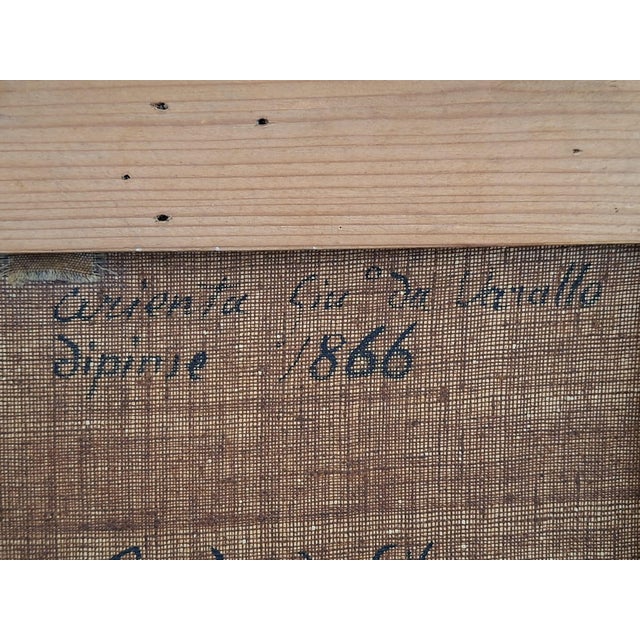 Arienta Giu.º da Varallo
dipinse 1866